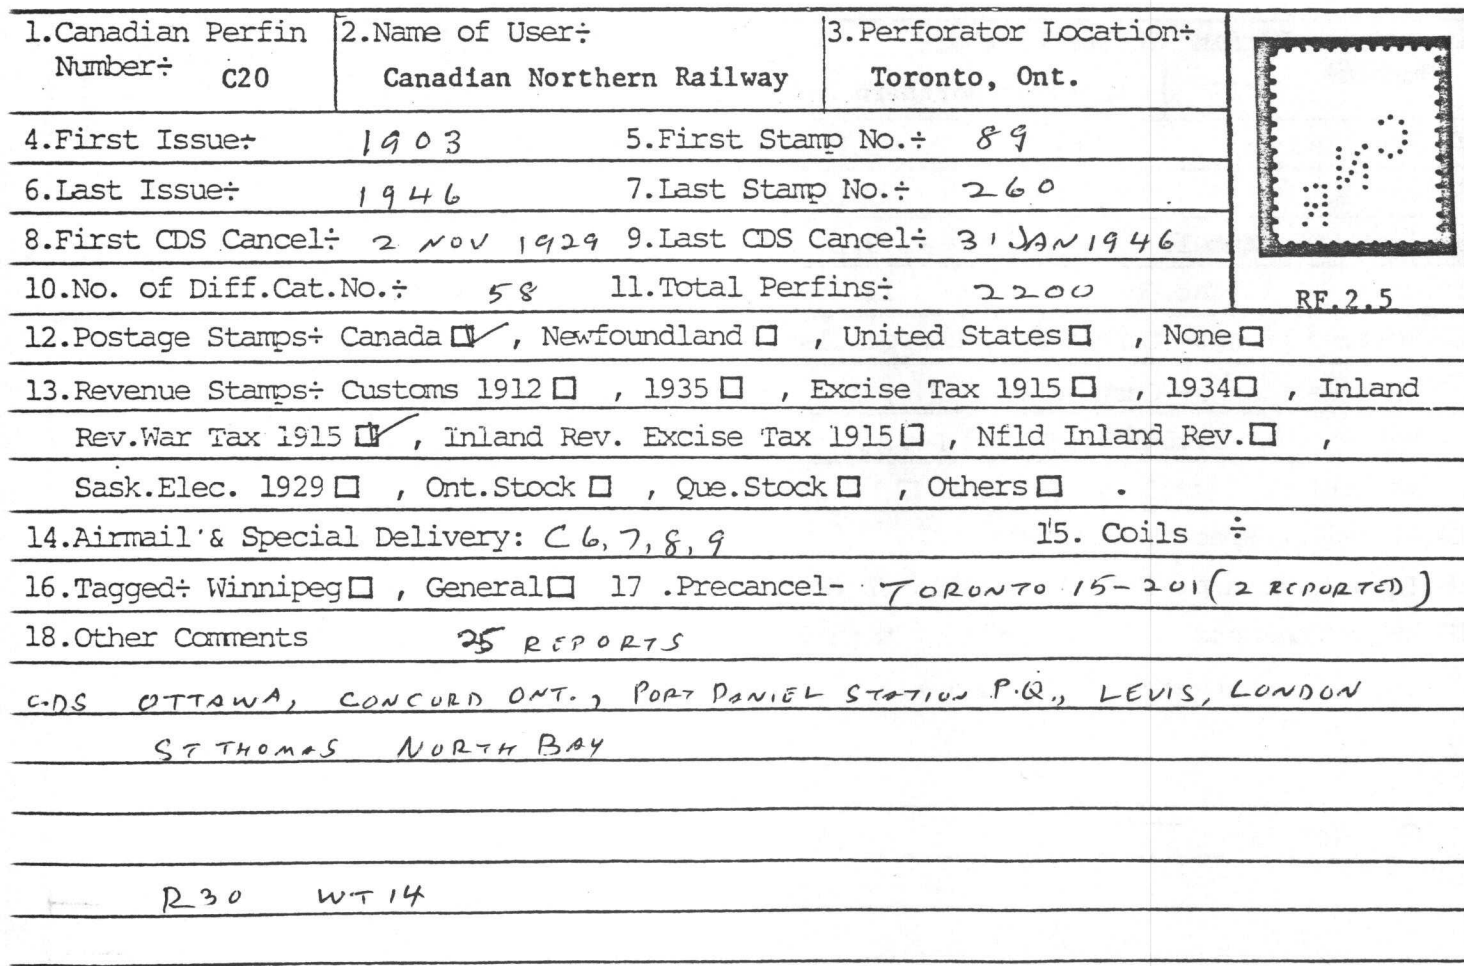 1.Canadian Perfin Number÷ C20
2.Name of User÷ Canadian Northern Railway
3.Perforator Location÷ Toronto, Ont.
CNR
RF.2.5
4.First Issue÷ 1903 5.First Stamp No.÷ 89
6.Last Issue÷ 1946 7.Last Stamp No.÷ 260
8.First CDS Cancel÷ 2 NOV 1929 9.Last CDS Cancel÷ 31 JAN 1946
10.No. of Diff.Cat.No.÷ 58 11.Total Perfins÷ 2200
12.Postage Stamps÷ Canada ☑, Newfoundland ☐ , United States ☐ , None ☐
13.Revenue Stamps÷ Customs 1912 ☐ , 1935 ☐ , Excise Tax 1915 ☐ , 1934 ☐ , Inland
Rev.War Tax 1915 ☑, Inland Rev. Excise Tax 1915 ☐ , Nfld Inland Rev. ☐ ,
Sask.Elec. 1929 ☐ , Ont.Stock ☐ , Que.Stock ☐ , Others ☐ .
14.Airmail & Special Delivery: C6,7,8,9 15. Coils ÷
16.Tagged÷ Winnipeg ☐ , General ☐ 17 .Precancel- TORONTO 15-201 (2 REPORTED)
18.Other Comments 25 REPORTS
CDS OTTAWA, CONCORD ONT., PORT DANIEL STATION P.Q., LEVIS, LONDON
ST THOMAS NORTH BAY
R30 WT14